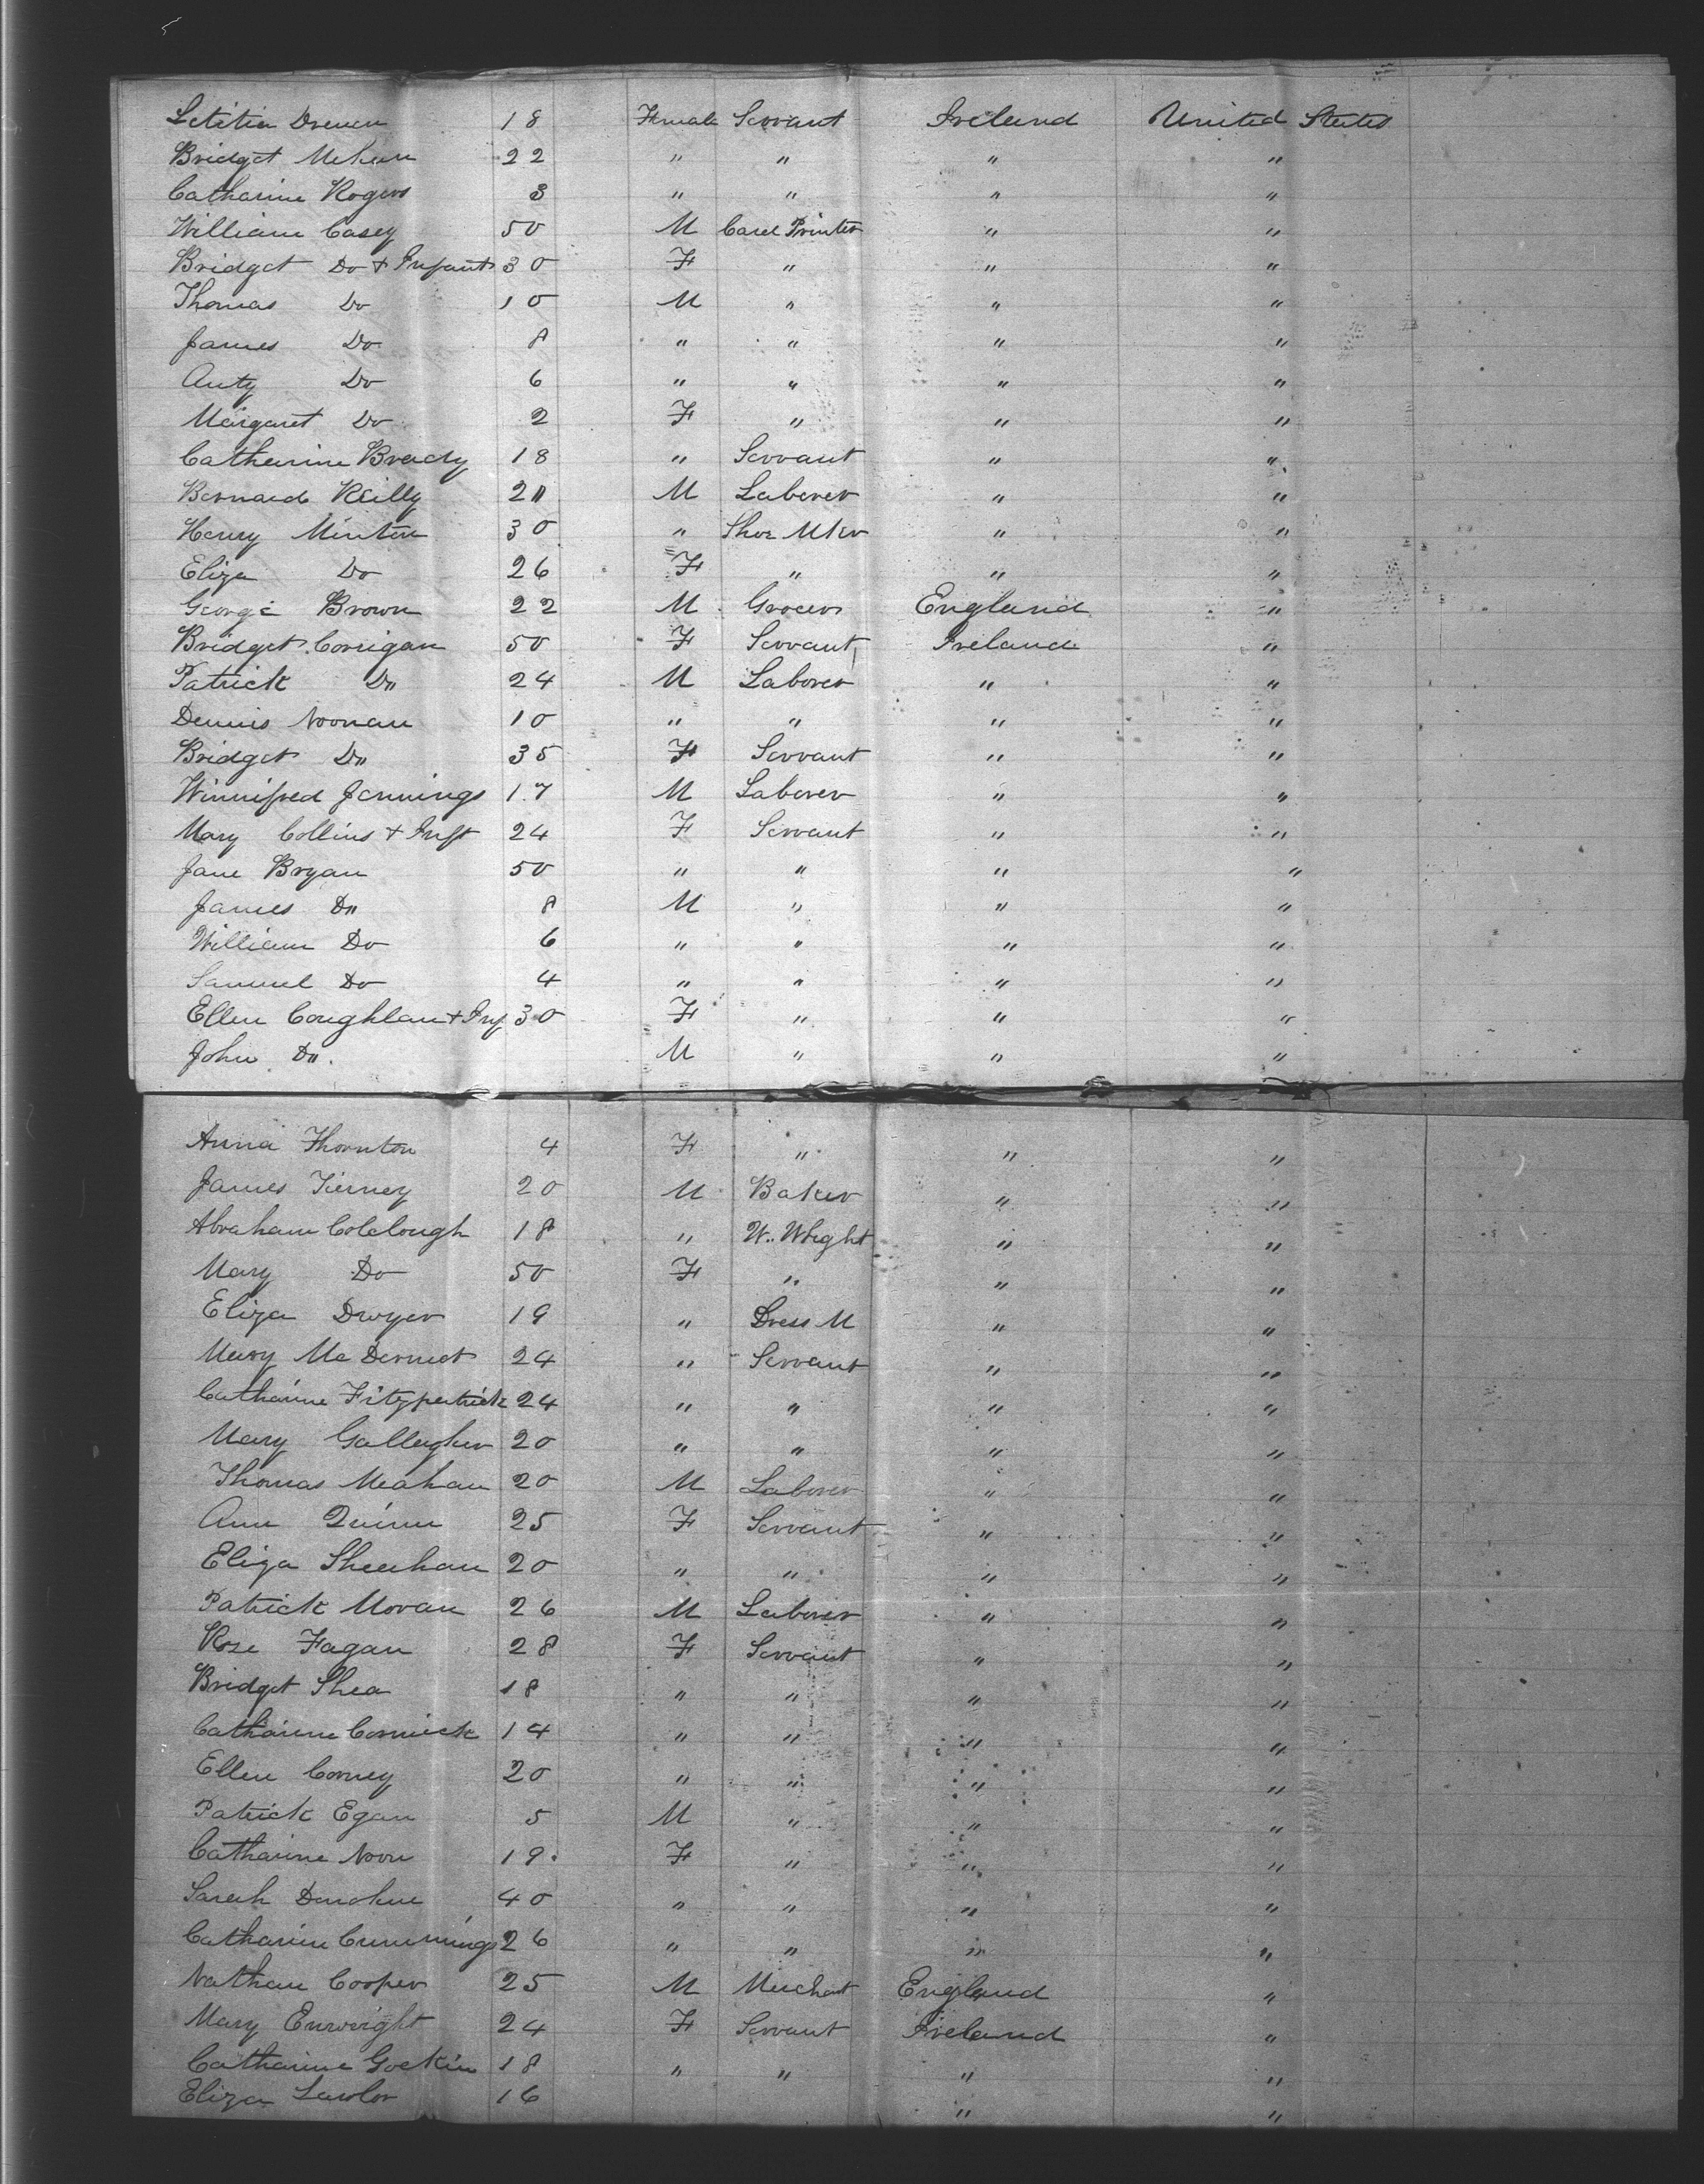 Letitia Drenen 18 Female Servant Ireland United States
Bridget Mehan 22 " " " "
Catharine Rogers 3 " " " "
William Casey 50 M Card Printer " "
Bridget Do + Infant 30 F " " "
Thomas Do 10 M " " "
James Do 8 " " " "
Anty Do 6 " " " "
Margaret Do 2 F " " "
Catharine Brady 18 " Servant " "
Bernard Reilly 20 M Laborer " "
Henry Minton 30 " Shoe Mkr " "
Eliza Do 26 F " " "
George Brown 22 M Grocer England "
Bridget Corrigan 50 F Servant Ireland "
Patrick Do 24 M Laborer " "
Dennis Noonan 10 " " " "
Bridget Do 35 F Servant " "
Winnifred Jennings 17 M Laborer " "
Mary Collins + Inft 24 F Servant " "
Jane Bryan 50 " " " "
James Do 8 M " " "
William Do 6 " " " "
Samuel Do 4 " " " "
Ellen Coughlan + Inf 30 F " " "
John Do. M " " "
Anna Thornton 4 F " " "
James Tierney 20 M Baker " "
Abraham Colclough 18 " W. Wright " "
Mary Do 50 F " " "
Eliza Dwyer 19 " Dress M " "
Mary McDermot 24 " Servant " "
Catharine Fitzpatrick 24 " " " "
Mary Gallagher 20 " " " "
Thomas Meahan 20 M Laborer " "
Ann Quinn 25 F Servant " "
Eliza Sheehan 20 " " " "
Patrick Moran 26 M Laborer " "
Rose Fagan 28 F Servant " "
Bridget Shea 18 " " " "
Catharine Cormick 14 " " " "
Ellen Corney 20 " " " "
Patrick Egan 5 M " " "
Catharine Noon 19 F " " "
Sarah Donohue 40 " " " "
Catharine Cummings 26 " " " "
Nathan Cooper 25 M Merchant England "
Mary Enwright 24 F Servant Ireland "
Catharine Gockin 18 " " " "
Eliza Lawlor 16 " "